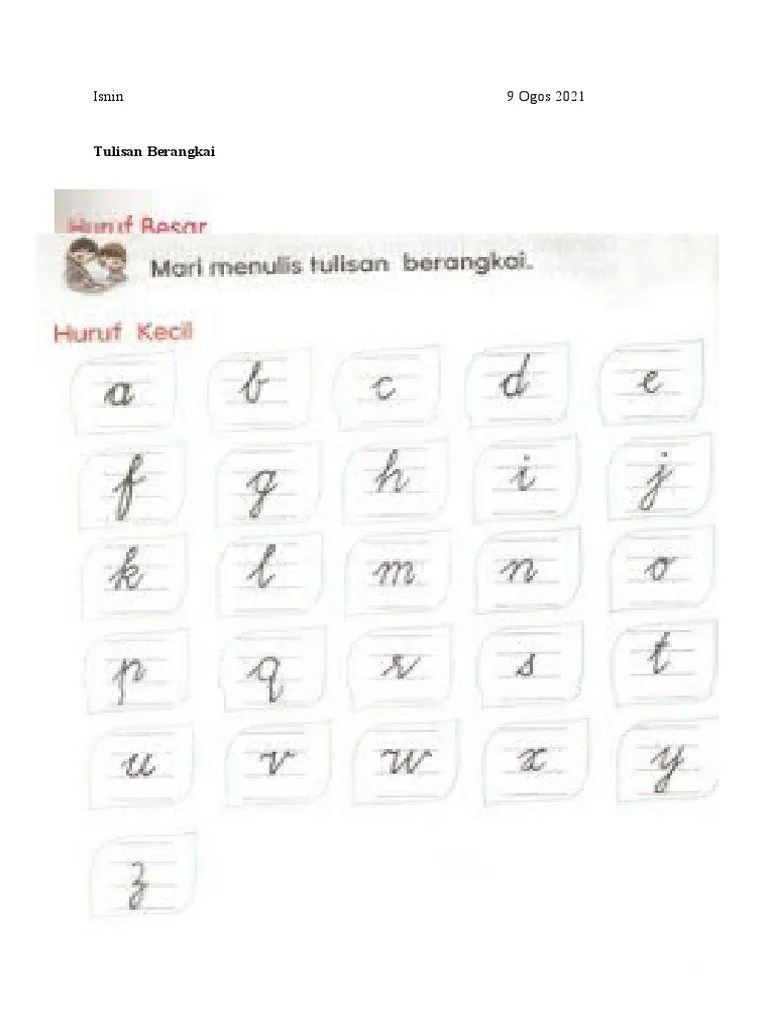 Isnin 9 Ogos 2021
Tulisan Berangkai
Huruf Besar
Mari menulis tulisan berangkai.
Huruf Kecil
a b c d e
f g h i j
k l m n o
p q r s t
u v w x y
z